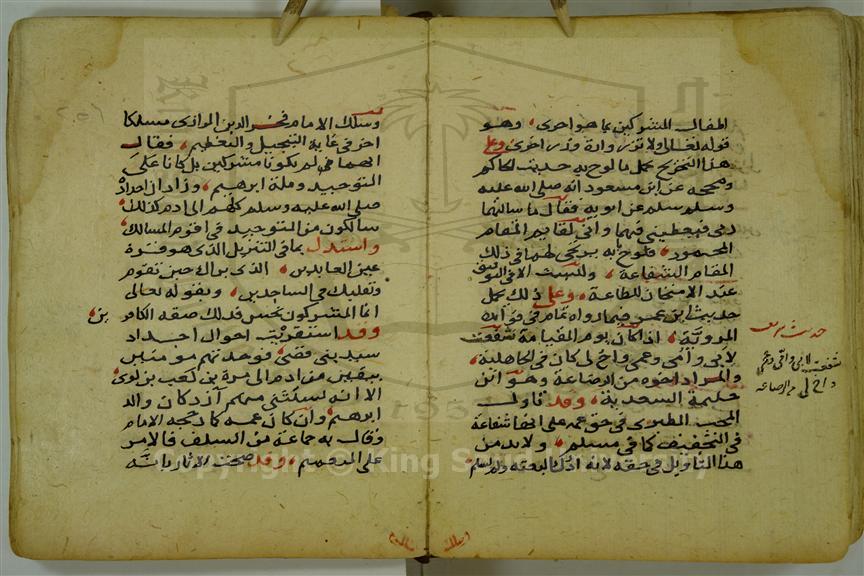 المقال المشركين بما هو احرى، وهو
قوله تعالى ولا تزر وازرة وزر اخرى وعلى
هذا التخريج يحمل ما لوح به حديث الحاكم
وصححه عن ابن مسعود انه صلى الله عليه
وسلم سئل عن ابويه فقال ما سالتهما
ربي فيعطيني فيهما واني لقايم المقام
المحمود، فلوح بانه يرتجى لهما في ذلك
المقام الشفاعة، وليست الا في التوفيق
عند الامتحان للطاعة، وعلى ذلك يحمل
حديث ابن عمر رواه تمام في فوايده
المروية، اذا كان يوم القيامة شفعت
لابي وامي وعمي واخ لي كان في الجاهلية،
والمراد اخوه من الرضاعة وهو ابن
حليمة السعدية، وقد تاول
المحب الطبري في حق عمه على انها شفاعة
في التخفيف كما في مسلم، ولابد من
هذا التاويل في حقه لانه ادرك البعثة ولم يسلم
حديث شريف
شفعت لابي وامي وعمي
واخ لي من الرضاعة
وسلك الامام فخر الدين الرازي مسلكا
اخر في غاية التبجيل والتعظيم، فقال
انهما لم يكونا مشركين بل كانا على
التوحيد وملة ابرهيم، وزاد ان اجداده
صلى الله عليه وسلم كلهم الى ادم كذلك،
سالكون من التوحيد في اقوم المسالك،
واستدل بما في التنزيل الذي هو قرة
عين العابدين، الذي يراك حين تقوم
وتقلبك في الساجدين، وبقوله تعالى
انما المشركون نجس فدلك صفة الكافر
وقد استقريت احوال اجداد
سيد بني قصي، فوجدتهم مومنين
بيقين من ادم الى مرة بن كعب بن لوي،
الا انه يستثنى منهم آزر ان كان والد
ابرهيم، وان كان عمه كما رجحه الامام
وقال به جماعة من السلف فالامر
على المرسم، وقد صحت الاثار بانه